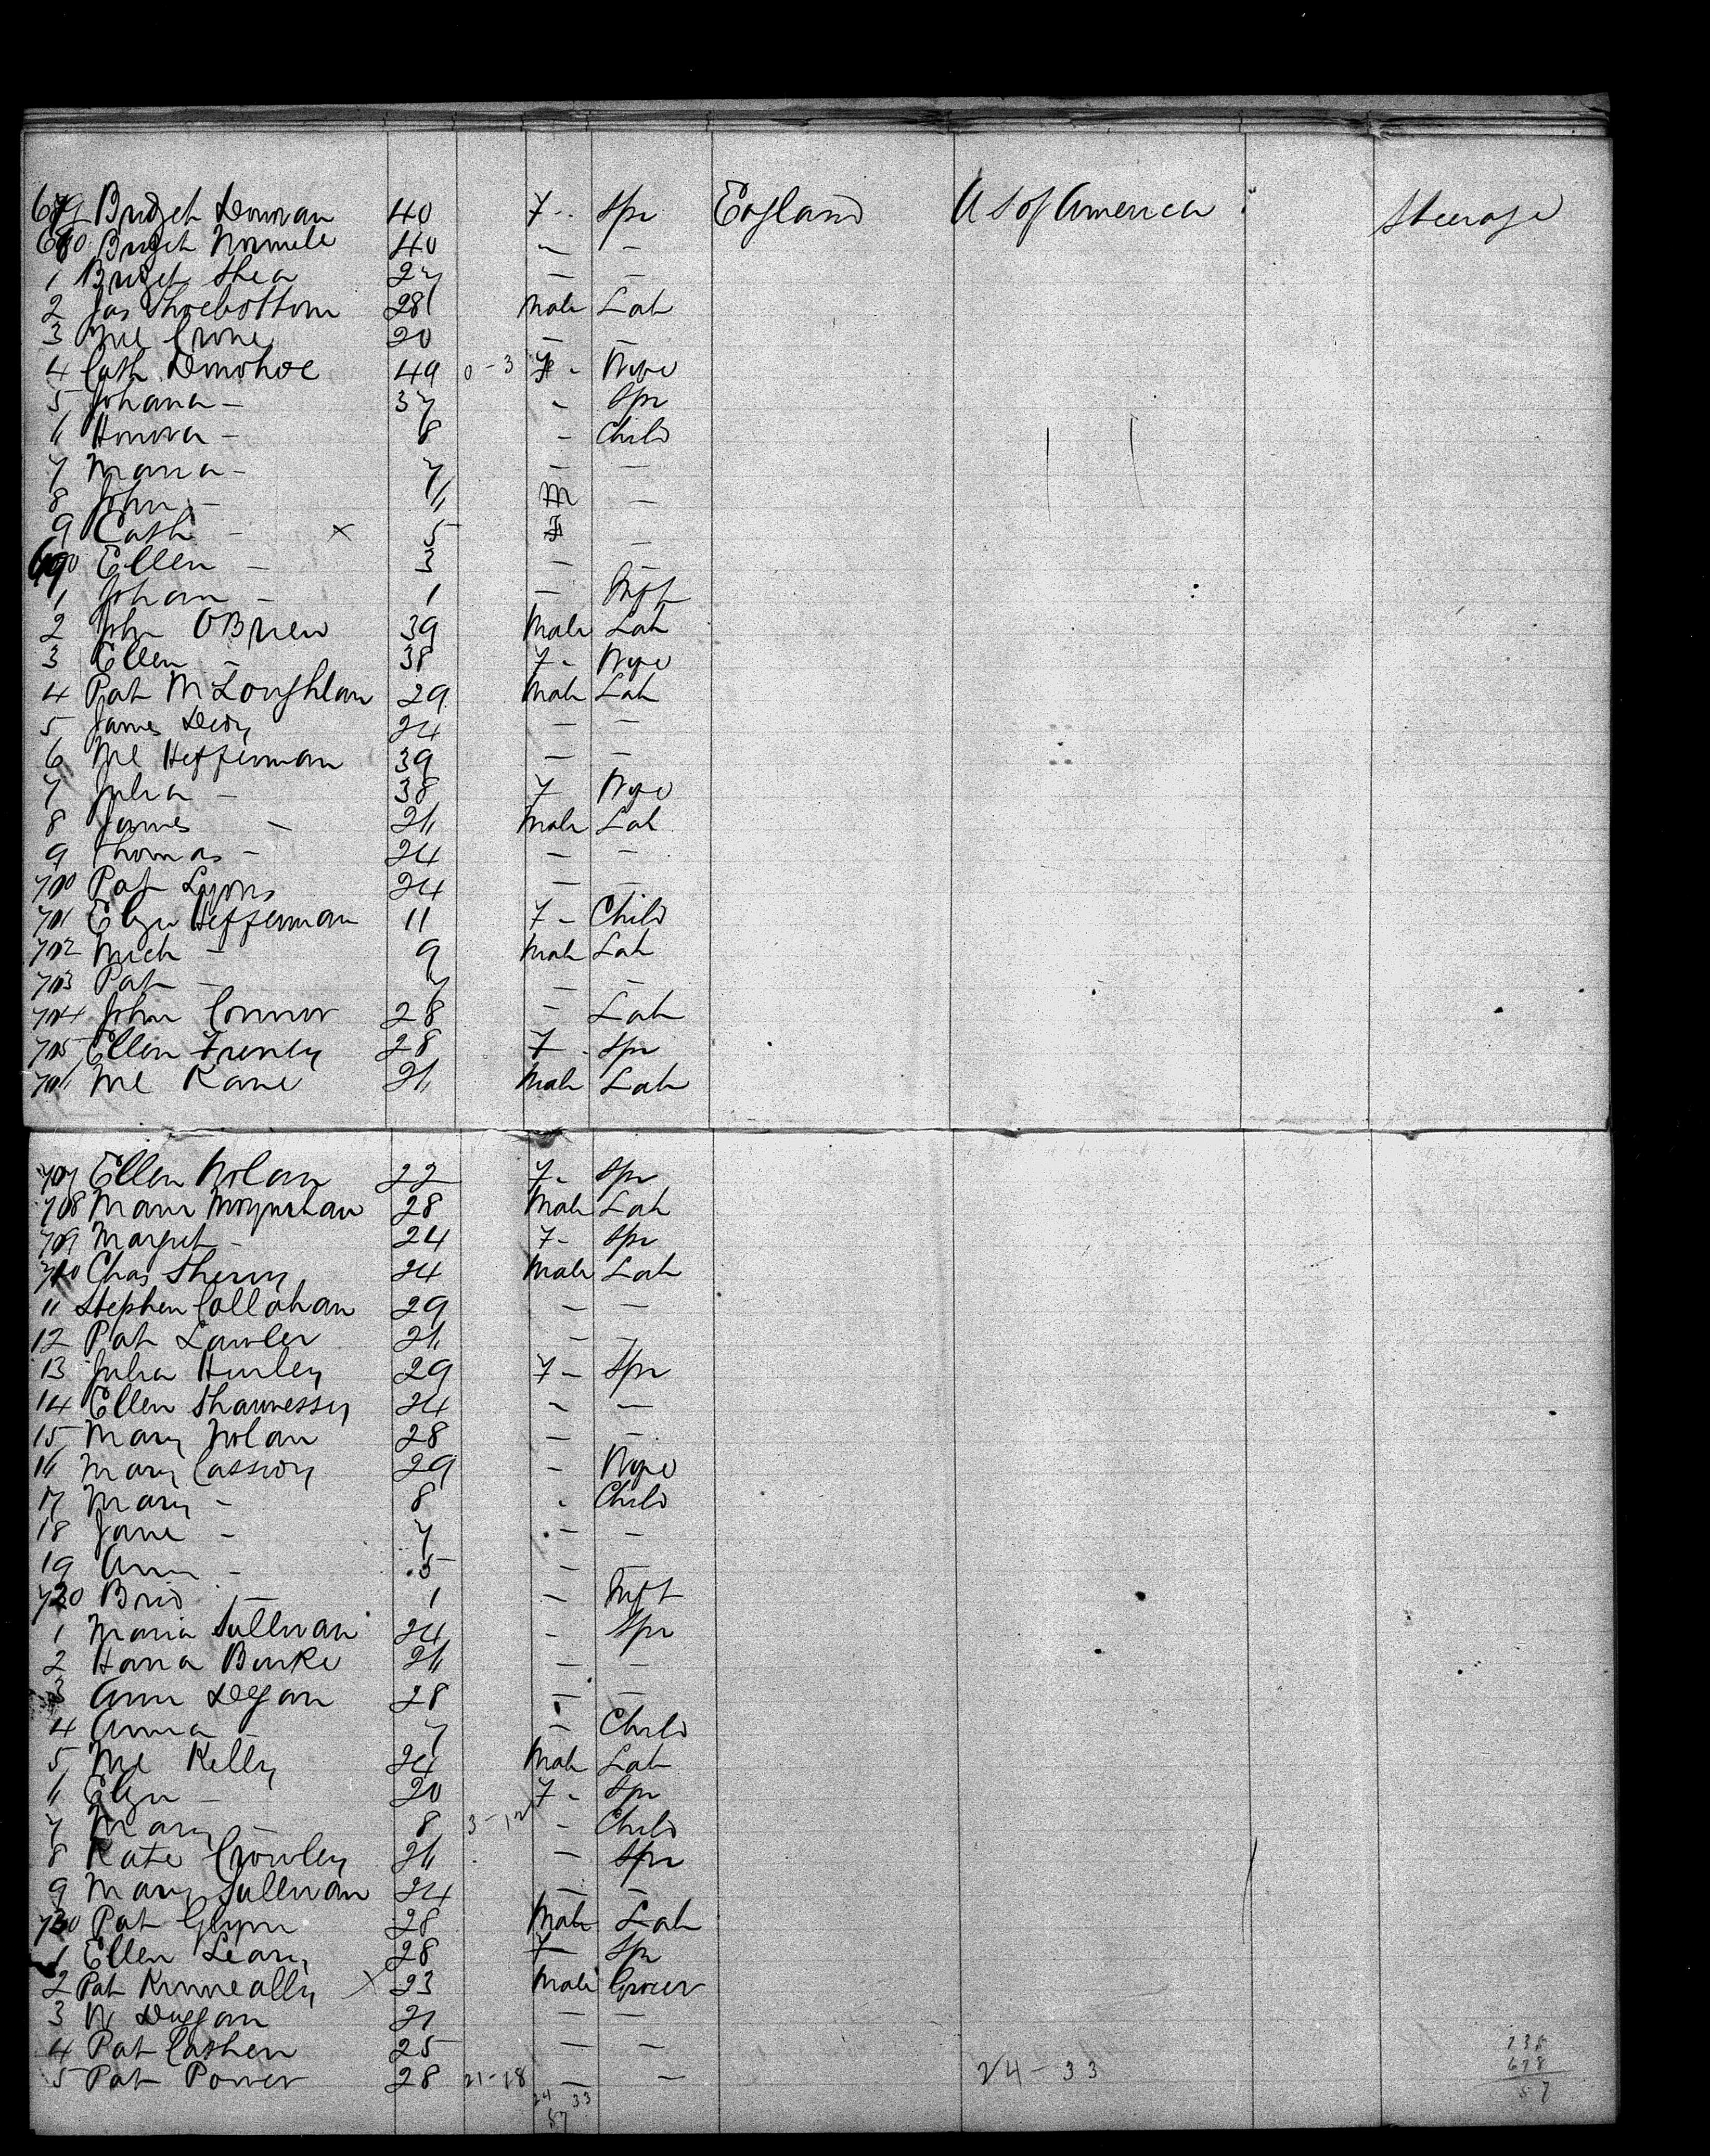 679 Bridget Donovan 40 F - Spr England U S of America Steerage
680 Bridget Normile 40 - -
1 Bridget Shea 27 - -
2 Jas Shoebottom 28 Male Lab
3 Ml Crone 20 - -
4 Cath Donohoe 49 0-3 F - Wife
5 Johana - 37 - Spr
6 Honora - 8 - Child
7 Maria - 7 - -
8 John - 6 M -
9 Cath - x 5 F -
690 Ellen - 3 - -
1 Johan - 1 - Inft
2 John OBrien 39 Male Lab
3 Ellen - 38 F - Wife
4 Pat McLoughlan 29 Male Lab
5 James 24 - -
6 Ml Hefferman 39 - -
7 Julia - 38 F Wife
8 James - 26 Male Lab
9 Thomas - 24 - -
700 Pat Lyons 24 - -
701 Eliza Hefferman 11 F - Child
702 Mich - 9 Male Lab
703 Pat - 7 - -
704 John Connor 28 - Lab
705 Ellen 28 F - Spr
706 Ml Kane 26 Male Lab
707 Ellen Nolan 22 F - Spr
708 Maur Moynihan 28 Male Lab
709 Margret - 24 F - Spr
710 Chas 24 Male Lab
11 Stephen Collahan 29 - -
12 Pat Lawler 26 - -
13 Julia Hurley 29 F - Spr
14 Ellen Shaunessy 24 - -
15 Mary Nolan 28 - -
16 Mary Cassidy 29 - Wife
17 Mary - 8 - Child
18 Jane - 7 - -
19 Ann - 5 - -
720 Brid - 1 - Inft
1 Maria Sullivan 24 - Spr
2 Hana Burke 26 - -
3 Ann Degan 28 - -
4 Anna - 7 - Child
5 Ml Kelly 24 Male Lab
6 Eliza - 20 F - Spr
7 Mary - 8 3-12 - Child
8 Kate Crowley 26 - Spr
9 Mary Sullivan 24 - -
730 Pat Glynn 28 Male Lab
1 Ellen Leary 28 F Spr
2 Pat Kinneally x 23 Male Grocer
3 W Duggan 21 - -
4 Pat Cashen 25 - -
5 Pat Power 28 21-18 - - 24-33
24 33
57
735
678
57